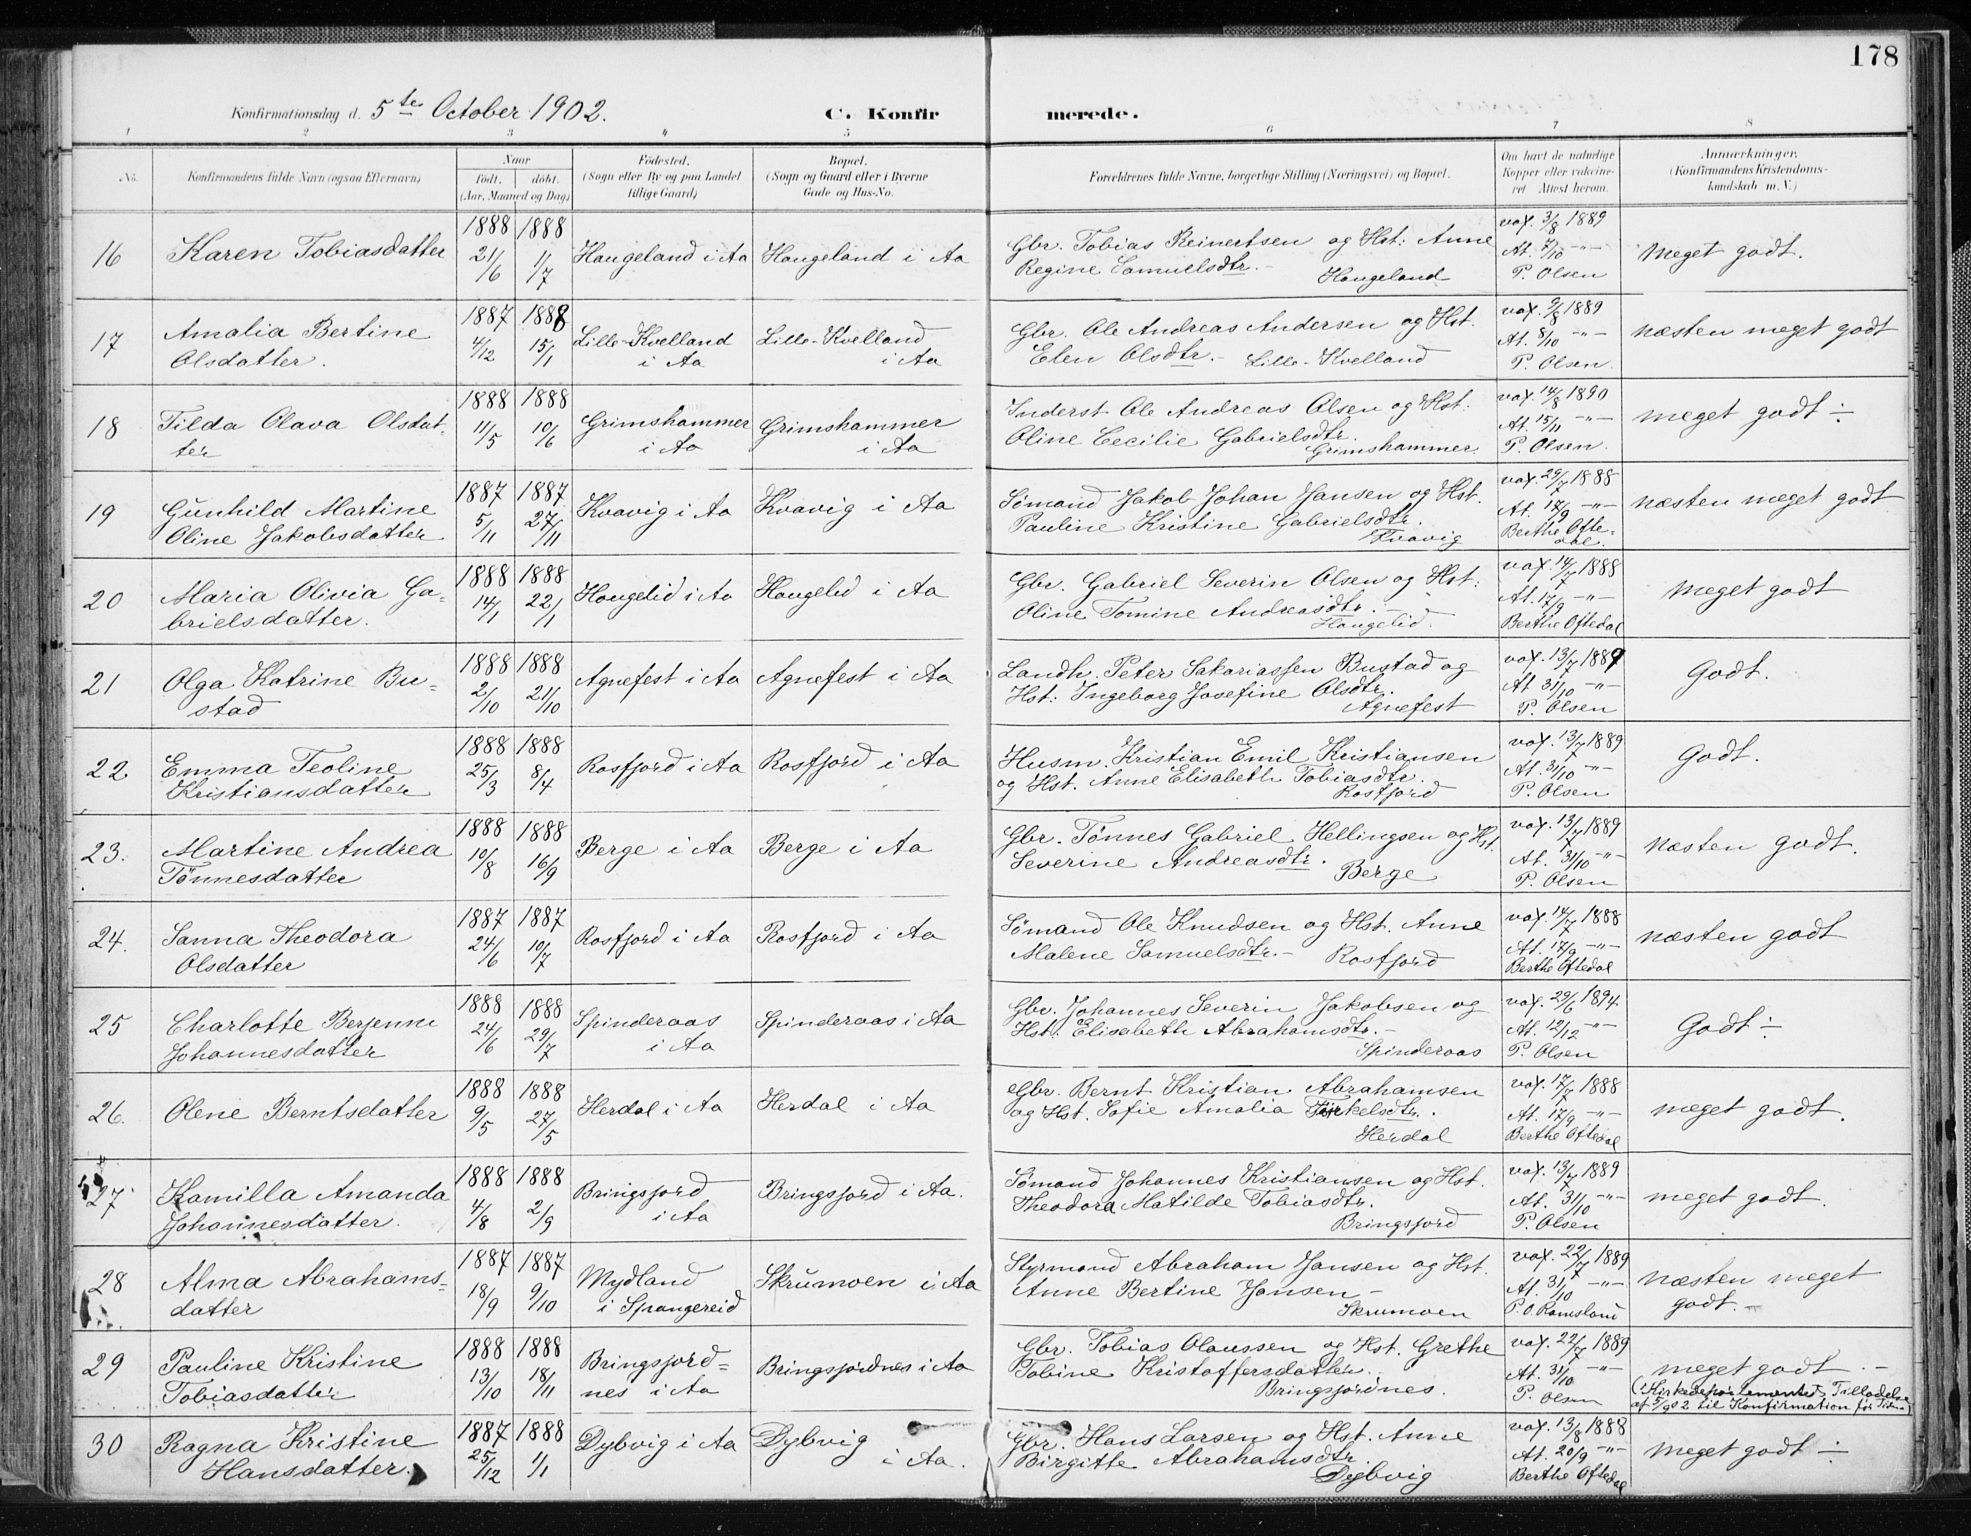 178
Konfirmationsdag d. 5te October 1902. C. Konfirmerede.
1 2 3 4 5 6 7 8
No. Konfirmandens fulde Navn (ogsaa Efternavn) Naar født. døbt. (Aar, Maaned og Dag) Fødested. (Sogn eller By og paa Landet tillige Gaard) Bopæl. (Sogn og Gaard eller i Byerne Gade og Hus-No. Forældrenes fulde Navne, borgerlige Stilling (Næringsvei) og Bopæl. Om havt de naturlige Kopper eller vakcineret Attest herom. Anmærkninger. (Konfirmandens Kristendomskundskab m. V.)
16 Karen Tobiasdatter 1888 21/6 1888 1/7 Haugeland i Aa Haugeland i Aa Gbr. Tobias Reinertsen og Hst: Anne
Regine Samuelsdtr. - Haugeland vax. 3/8 1889 At. 7/10 -"- P. Olsen Meget godt.
17 Amalia Bertine
Olsdatter. 1887 4/12 1888 15/1 Lille-Kvelland i Aa Lille-Kvelland i Aa Gbr. Ole Andreas Andersen og Hst.
Elen Olsdtr. - Lille-Kvelland vax. 9/8 1889 At. 8/10 -"- P. Olsen. næsten meget godt
18 Tilda Olava Olsdat-
ter 1888 11/5 1888 10/6 Grimshammer i Aa Grimshammer i Aa Inderst Ole Andreas Olsen og Hst:
Oline Cecilie Gabrielsdtr. Grimshammer. vax. 14/8 1890 At. 15/11 -"- P. Olsen. meget godt ÷
19 Gunhild Martine
Oline Jakobsdatter 1887 5/11 1887 27/11 Kvavig i Aa Kvavig i Aa Sømand Jakob Johan Jansen og Hst.
Pauline Kristine Gabrielsdtr. Kvavig vax. 29/7 1888 At. 17/9 -"- Berthe Oftedal. næsten meget godt
20 Maria Olivia Ga-
brielsdatter. 1888 14/1 1888 22/1 Haugelid i Aa Haugelid i Aa Gbr. Gabriel Severin Olsen og Hst:
Oline Tomine Andreasdtr. - Haugelid. vax. 14/7 1888 At. 17/9 -"- Berthe Oftedal Meget godt
21 Olga Katrine Bu-
stad 1888 2/10 1888 21/10 Agnefest i Aa Agnefest i Aa Landh. Peter Sakariassen Bustad og
Hst: Ingeborg Josefine Olsdtr. Agnefest vax. 13/7 1889 At 31/10 -"- P. Olsen Godt.
22 Emma Teoline
Kristiansdatter 1888 25/3 1888 8/4 Rosfjord i Aa Rosfjord i Aa Husm. Kristian Emil Kristiansen
og Hst. Anne Elisabeth Tobiasdtr. Rosfjord vax. 13/7 1889 At. 31/10 -"- P. Olsen Godt.
23. Martine Andrea
Tønnesdatter 1888 10/8 1888 16/9 Berge i Aa Berge i Aa Gbr. Tønnes Gabriel Hellingsen og Hst.
Severine Andreasdtr. Berge vax. 13/7 1889 At. 31/10 -"- P. Olsen Næsten godt.
24. Sanna Theodora
Olsdatter 1887 24/6 1887 10/7 Rosfjord i Aa Rosfjord i Aa Sømand Ole Knudsen og Hst. Anne
Malene Samuelsdtr. - Rosfjord vax. 14/7 1888 At. 17/9 -"- Berthe Oftedal næsten godt
25 Charlotte Berjenne
Johannesdatter 1888 24/6 1888 29/7 Spinderaas i Aa Spinderaas i Aa Gbr. Johannes Severin Jakobsen og
Hst. Elisabeth Abrahamsdtr. - Spinderaas vax. 29/6 1894. At. 12/12 -"- P. Olsen Godt ÷
26. Olene Berntsdatter 1888 9/5 1888 27/5 Herdal i Aa Herdal i Aa Gbr. Bernt Kristian Abrahamsen
og Hst. Sofie Amalia Tørkelsdtr. Herdal vax. 17/7 1888 At. 17/9 -"- Berthe Oftedal meget godt.
27 Kamilla Amanda
Johannesdatter. 1888 4/8 1888 2/9 Bringsjord i Aa Bringsjord i Aa. Sømand Johannes Kristiansen og Hst.
Theodora Matilde Tobiasdtr. Bringsjord vax. 13/7 1889 At. 31/10 -"- P. Olsen meget godt.
28 Alma Abrahams-
datter 1887 18/9 1887 9/10 Mydland i Spangereid Skrumoen i Aa Styrmand Abraham Jansen og Hst.
Anne Bertine Jansen - Skrumoen vax. 22/7 1889 At. 31/10 -"- P. O. Ramsland næsten meget godt. -
29 Pauline Kristine
Tobiasdatter 1888 13/10 1888 18/11 Bringsjord-
nes i Aa Bringsjordnes i Aa Gbr. Tobias Olaussen og Hst. Grethe
Tobine Kristoffersdatter. Bringsjordnes. vax. 22/7 1889 At. 31/10 -"- P. Olsen meget godt. -
(Kirkedepartementets Tilladelse
af 5/9 02 til Konfirmation før Tiden)
30 Ragna Kristine
Hansdatter. 1887 25/12 1888 1/1 Dybvig i Aa Dybvig i Aa. Gbr. Hans Larsen og Hst. Anne
Birgitte Abrahamsdtr. Dybvig vax. 13/8 1888 At. 20/9 -"- Berthe Oftedal meget godt ÷